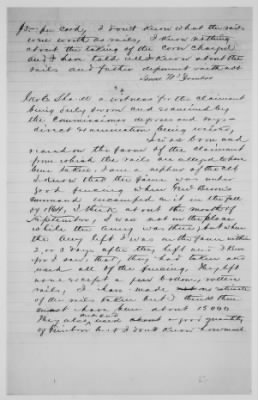 per cord, I don't know what the rails
were worth as rails, I know nothing
about the taking of the corn charged
and I have told all I know about the
rails and further deponent saith not
a witness for the claimant
being duly sworn and examined by
the Commissioner deposes and says
direct examination being waived,
I was born and
raised on the farm of the claimant
from which the rails are alleged to have
been taken, I am a nephew of the clt
I know that the farm was under
good fencing when Genl
command encamped on it in the fall
of 1864, I think about the month of
September, I was not on the place
while the army was there, but when
the army left I was on the farm within
2 or 3 days after they left and then
I saw that they had taken and
used all of the fencing. They left
none except a few broken, rotten
rails, I have made an estimate
of the rails taken and I think there
must have been about 15000
They also used about a good quantity
of timber but I don't know how much